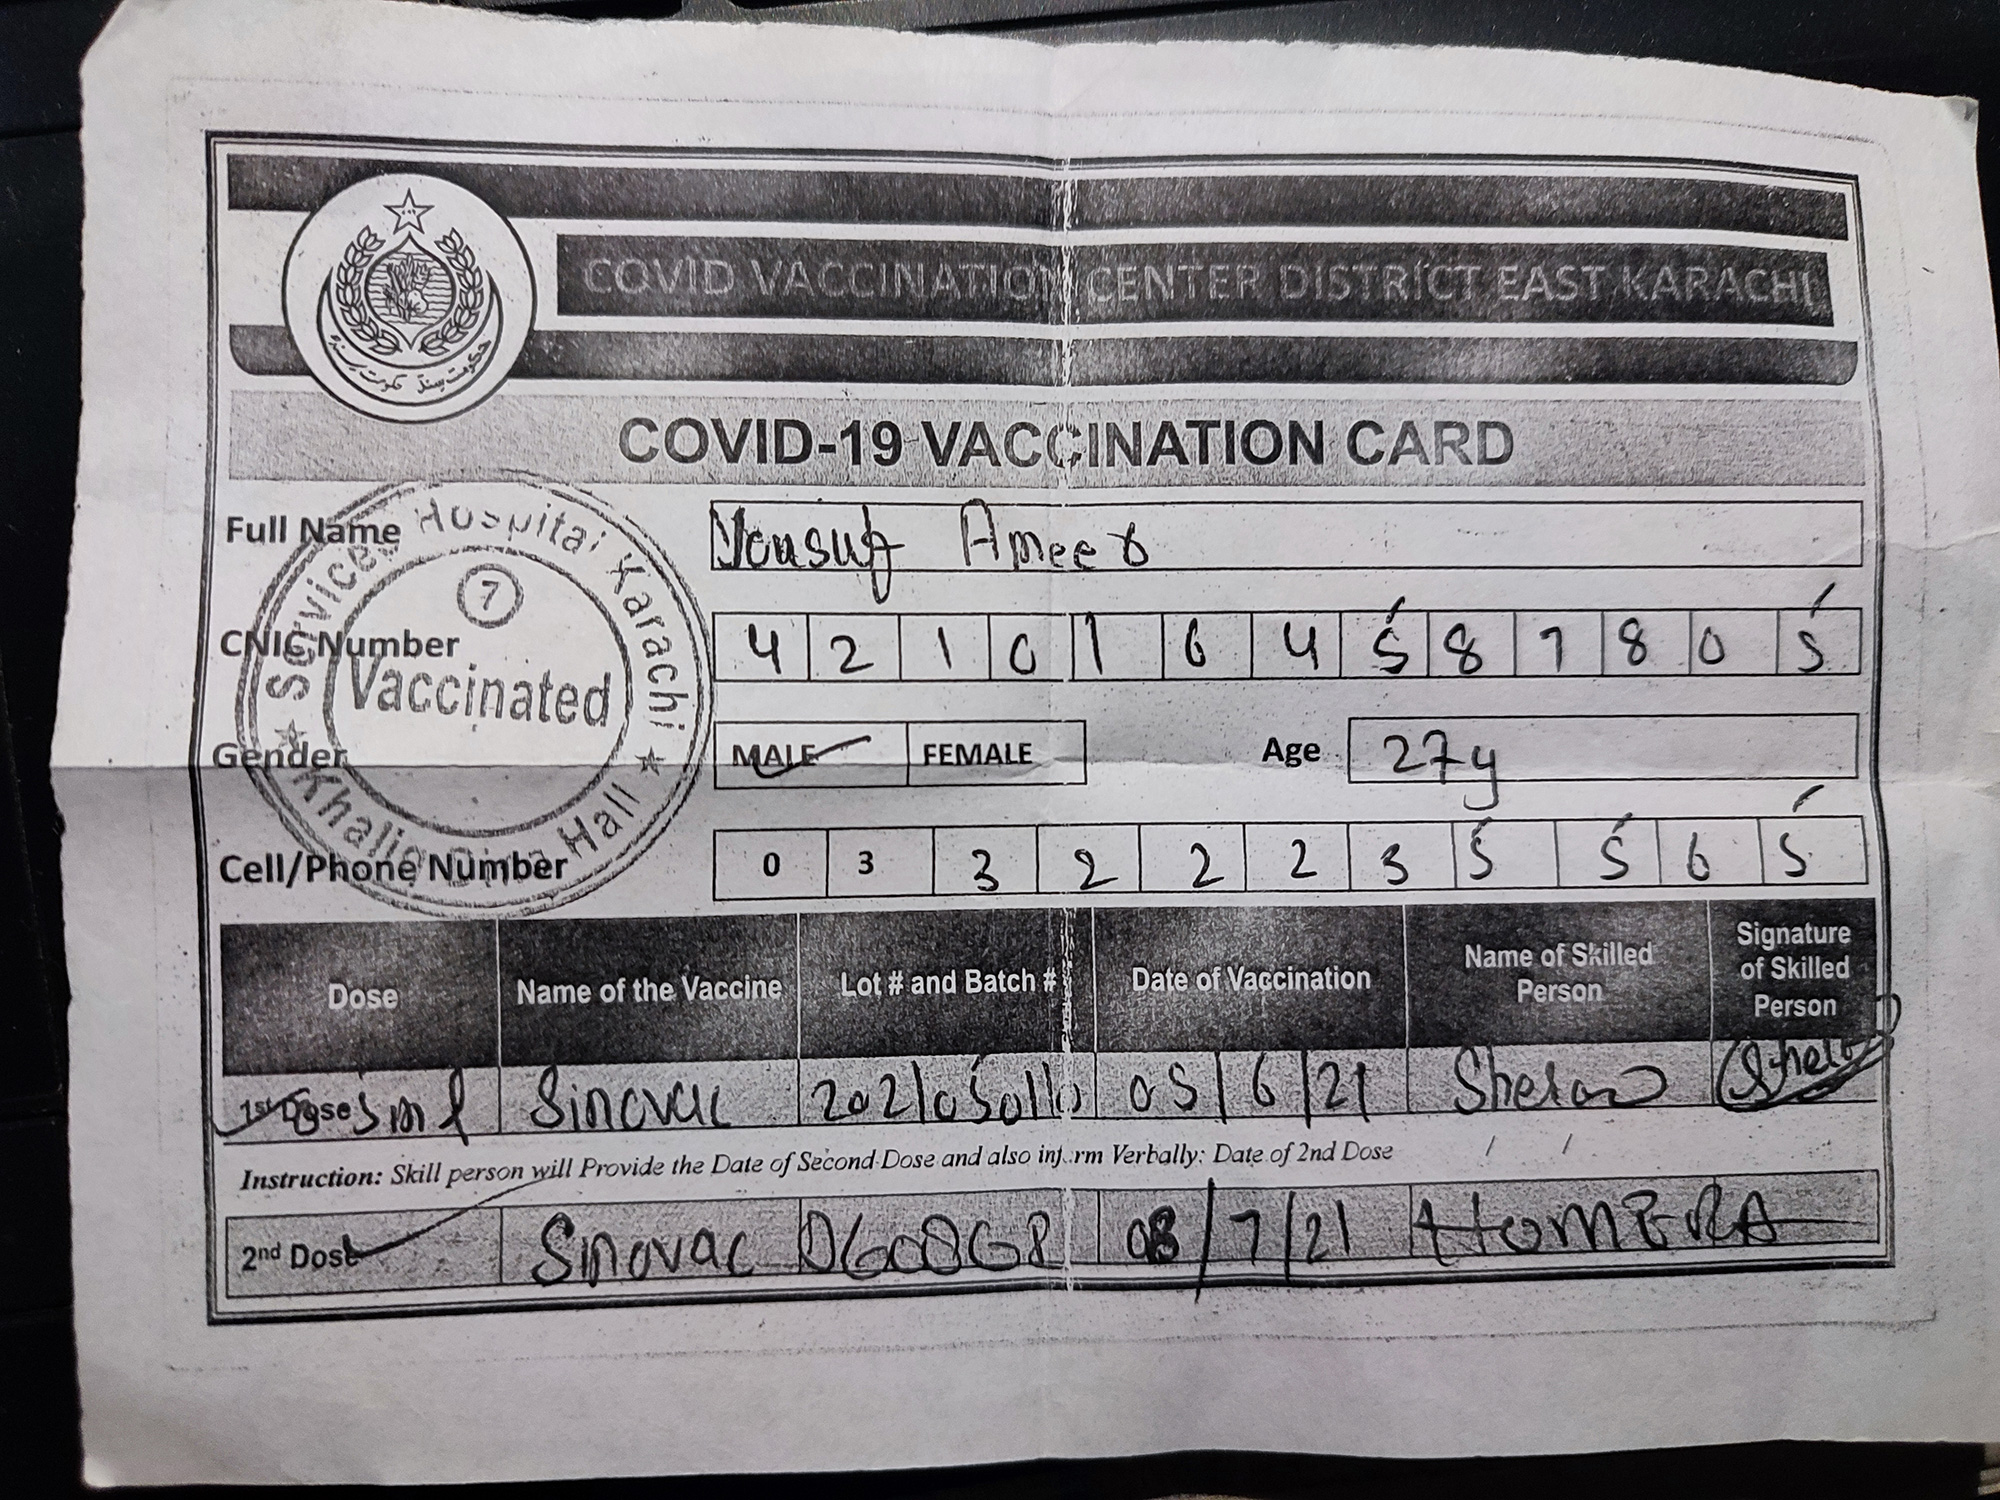 حکومت سندھ
COVID VACCINATION CENTER DISTRICT EAST KARACHI
COVID-19 VACCINATION CARD
Services Hospital Karachi
7
Vaccinated
Khaliq Hall
Full Name Yousuf Ameer
CNIC Number 4 2 1 0 1 6 4 5 8 7 8 0 5
Gender MALE FEMALE Age 27y
Cell/Phone Number 0 3 3 2 2 2 3 5 5 6 5
Dose Name of the Vaccine Lot # and Batch # Date of Vaccination Name of Skilled Person Signature of Skilled Person
1st Dose Sinovac 05/6/21
Instruction: Skill person will Provide the Date of Second Dose and also inform Verbally: Date of 2nd Dose / /
2nd Dose Sinovac 08/7/21